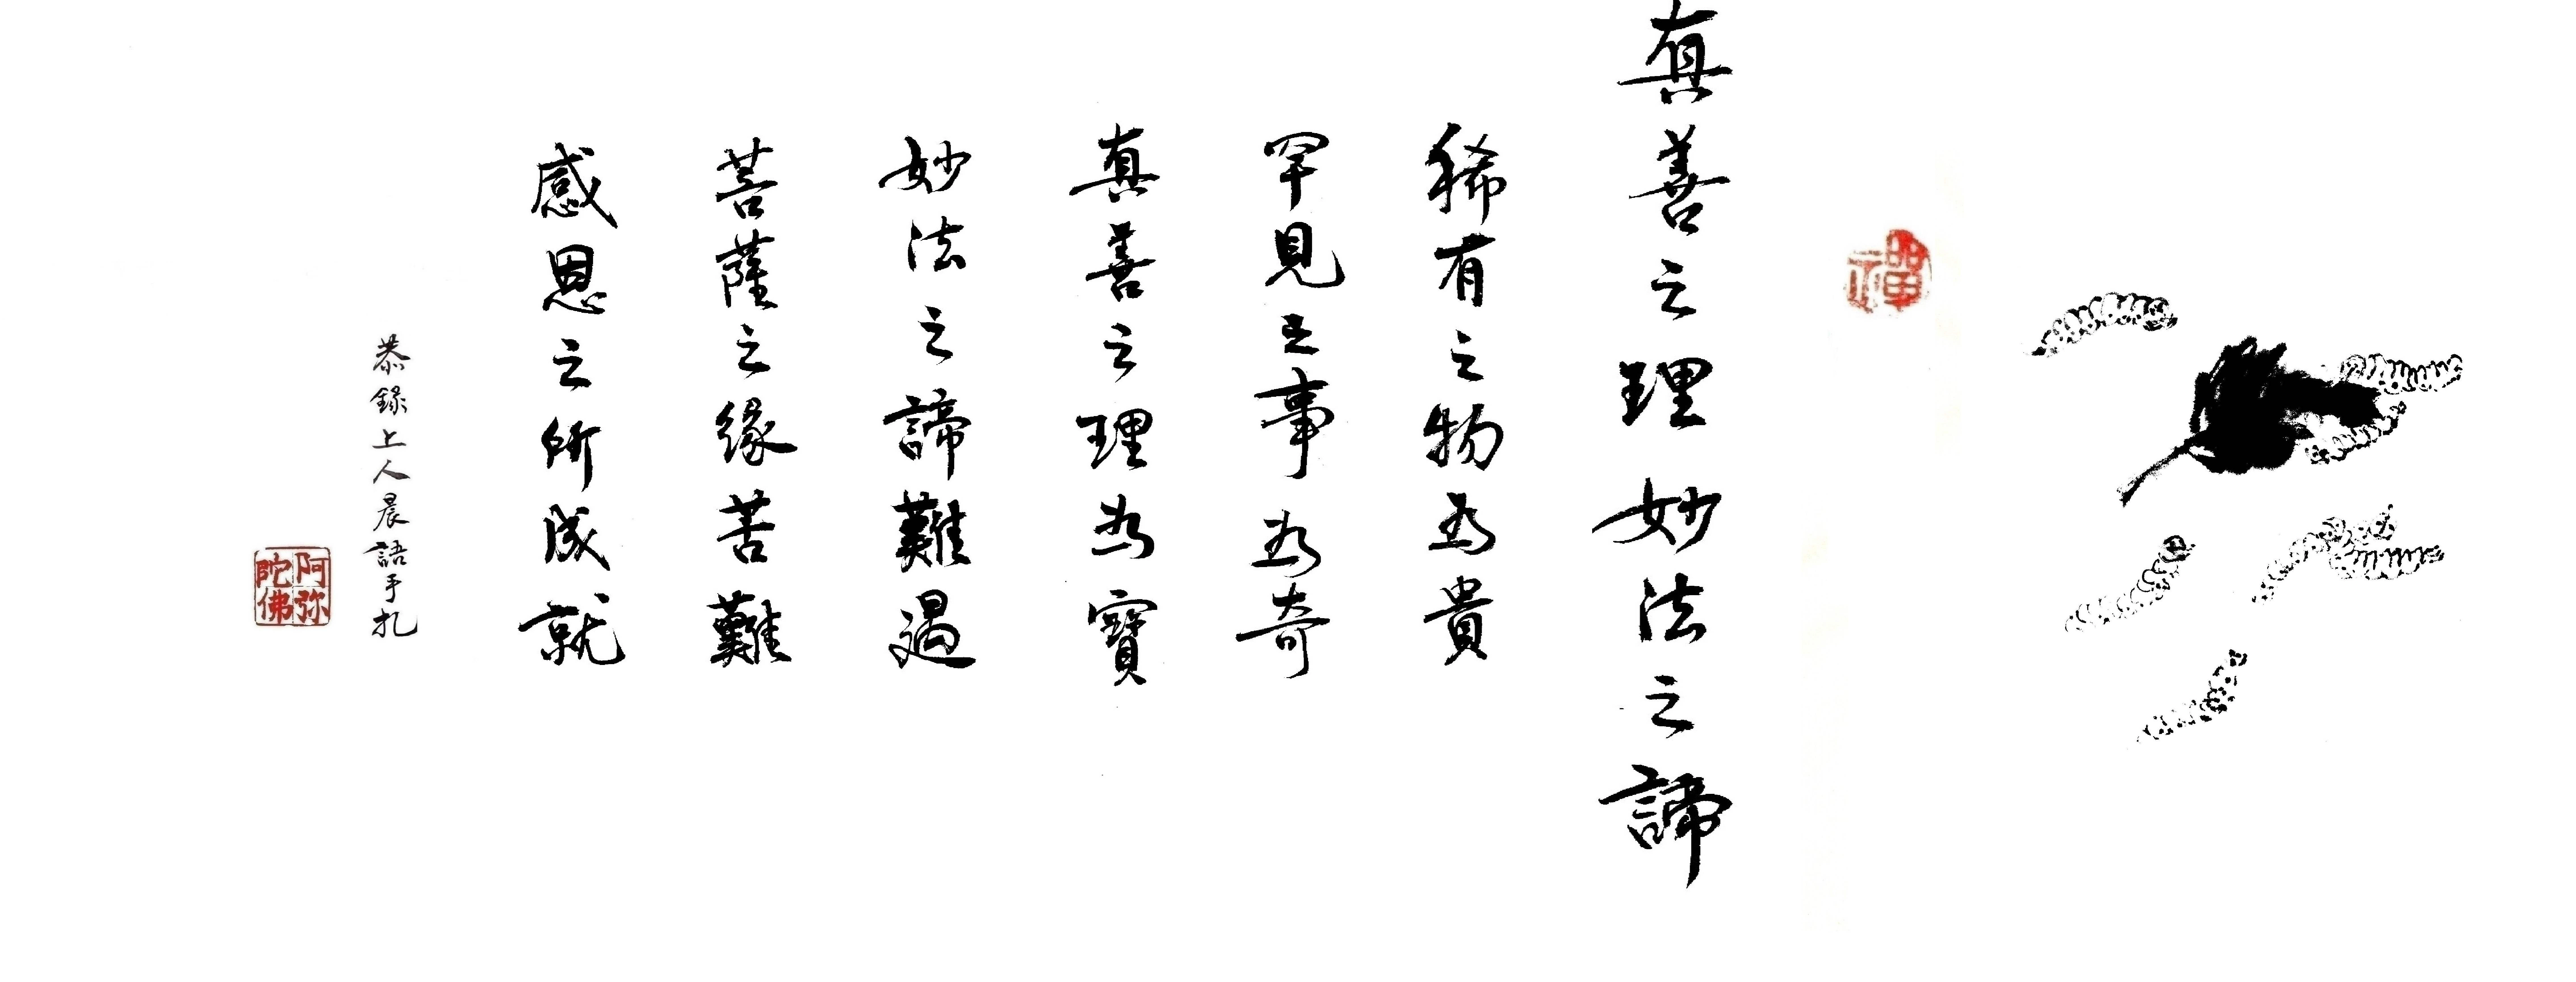 禪
真善之理妙法之諦
稀有之物為貴
罕見之事為奇
真善之理為寶
妙法之諦難遇
菩薩之緣苦難
感恩之所成就
恭錄上人晨語手札
阿弥陀佛